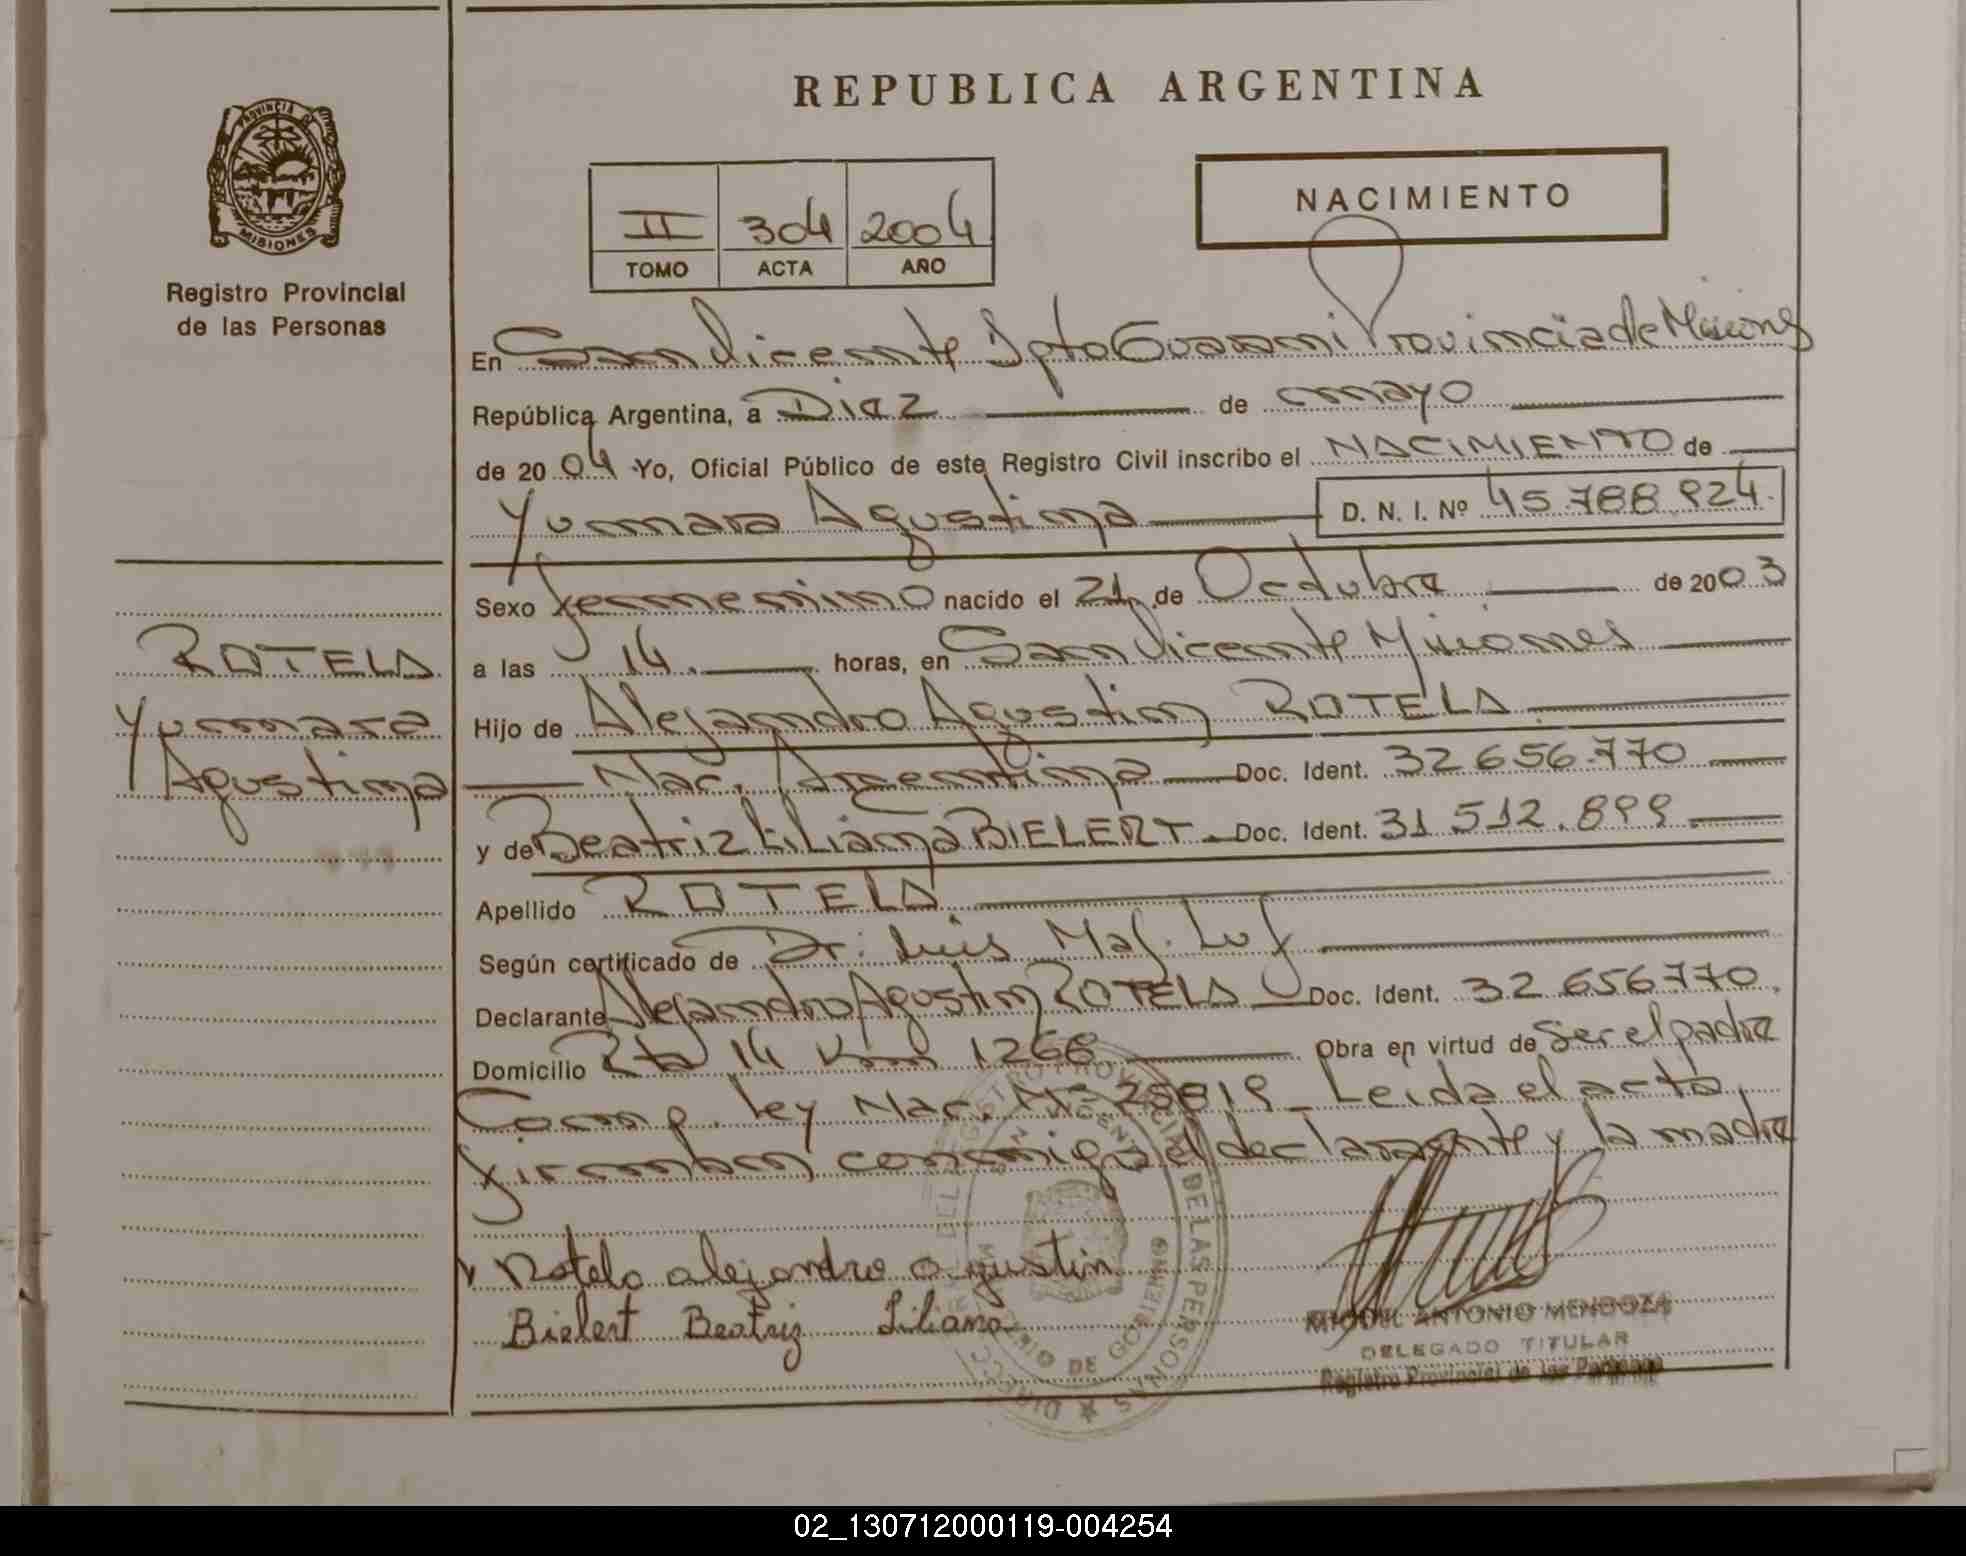 REPUBLICA ARGENTINA
PROVINCIA DE
MISIONES
Registro Provincial
de las Personas
II 304 2004
TOMO ACTA AÑO
NACIMIENTO
En San Vicente Dpto Guarani Provincia de Misiones
República Argentina, a Diez de mayo
de 2004 Yo, Oficial Público de este Registro Civil inscribo el NACIMIENTO de
Yunmara Agustina D. N. I. Nº 45.788.924
Sexo femenino nacido el 21 de Octubre de 2003
a las 14. horas, en San Vicente Misiones
Hijo de Alejandro Agustin ROTELA
Nac. Argentina Doc. Ident. 32 656.770
y de Beatriz Liliana BIELERT Doc. Ident. 31 512.899
Apellido ROTELA
Según certificado de Dr: Luis
Declarante Alejandro Agustin ROTELA Doc. Ident. 32 656770.
Domicilio Rta 14 Km 1268 Obra en virtud de Ser el padre
Comp. Ley Nac. Nº 25819_ Leida el acta
firman conmigo el declarante y la madre
Rotela alejandro agustin
Bielert Beatriz Liliana
MIGUEL ANTONIO MENDOZA
DELEGADO TITULAR
Registro Provincial de las Personas
ROTELA
Yunmara
Agustina
02_130712000119-004254